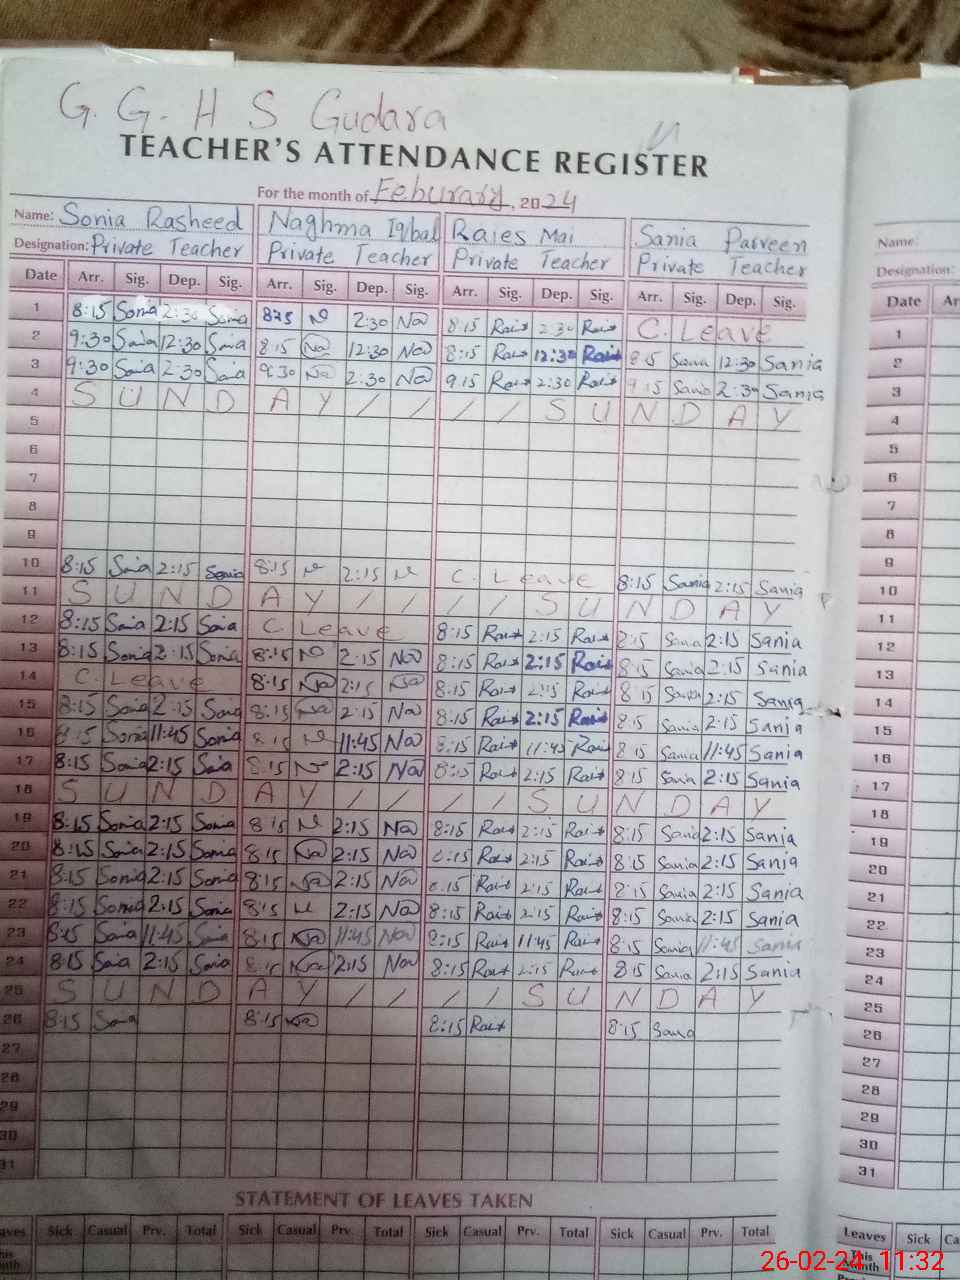 G. G. H S Gudara
TEACHER'S ATTENDANCE REGISTER
For the month of Feburary, 2024
Name: Sonia Rasheed Naghma Iqbal Raies Mai Sania Parveen Name:
Designation: Private Teacher Private Teacher Private Teacher Private Teacher Designation:
Date Arr. Sig. Dep. Sig. Arr. Sig. Dep. Sig. Arr. Sig. Dep. Sig. Arr. Sig. Dep. Sig. Date
1 8:15 Sonia 2:30 Sonia 2:30 Na 8:15 2:30 C. Leave 1
2 9:30 12:30 8:15 Na 12:30 Na 8:15 12:30 8:15 Sania 12:30 Sania 2
3 9:30 2:30 9:30 Na 2:30 Na 9:15 2:30 9:15 Sania 2:30 Sania 3
4 S U N D A Y / / / / S U N D A Y 4
5 5
6 6
7 7
8 8
9 9
10 8:15 2:15 Sonia 8:15 N 2:15 N C. Leave 8:15 Sania 2:15 Sania 10
11 S U N D A Y / / / / S U N D A Y 11
12 8:15 2:15 C. Leave 8:15 2:15 8:15 Sania 2:15 Sania 12
13 8:15 Sonia 2:15 Sonia 8:15 N 2:15 Na 8:15 2:15 8:15 Sania 2:15 Sania 13
14 C. Leave 8:15 Na 2:15 Na 8:15 2:15 8:15 Sania 2:15 Sania 14
15 8:15 Sonia 2:15 Sonia 8:15 Na 2:15 Na 8:15 2:15 8:15 Sania 2:15 Sania 15
16 8:15 Sonia 11:45 Sonia 8:15 N 11:45 Na 8:15 11:45 8:15 Sania 11:45 Sania 16
17 8:15 Sonia 2:15 8:15 2:15 Na 8:15 2:15 8:15 Sania 2:15 Sania 17
18 S U N D A Y / / / / S U N D A Y 18
19 8:15 Sonia 2:15 Sonia 8:15 N 2:15 Na 8:15 2:15 8:15 Sania 2:15 Sania 19
20 8:15 Sonia 2:15 Sonia 8:15 Na 2:15 Na 8:15 2:15 8:15 Sania 2:15 Sania 20
21 8:15 Sonia 2:15 Sonia 8:15 Na 2:15 Na 8:15 2:15 8:15 Sania 2:15 Sania 21
22 8:15 Sonia 2:15 Sonia 8:15 N 2:15 Na 8:15 2:15 8:15 Sania 2:15 Sania 22
23 8:15 11:45 8:15 Na 11:45 Na 8:15 11:45 8:15 Sania 11:45 Sania 23
24 8:15 2:15 8:15 Na 2:15 Na 8:15 2:15 8:15 Sania 2:15 Sania 24
25 S U N D A Y / / / / S U N D A Y 25
26 8:15 8:15 Na 8:15 8:15 26
27 27
28 28
29 29
30 30
31 31
STATEMENT OF LEAVES TAKEN
Sick Casual Prv. Total Sick Casual Prv. Total Sick Casual Prv. Total Sick Casual Prv. Total Leaves Sick
This
Month
26-02-24 11:32